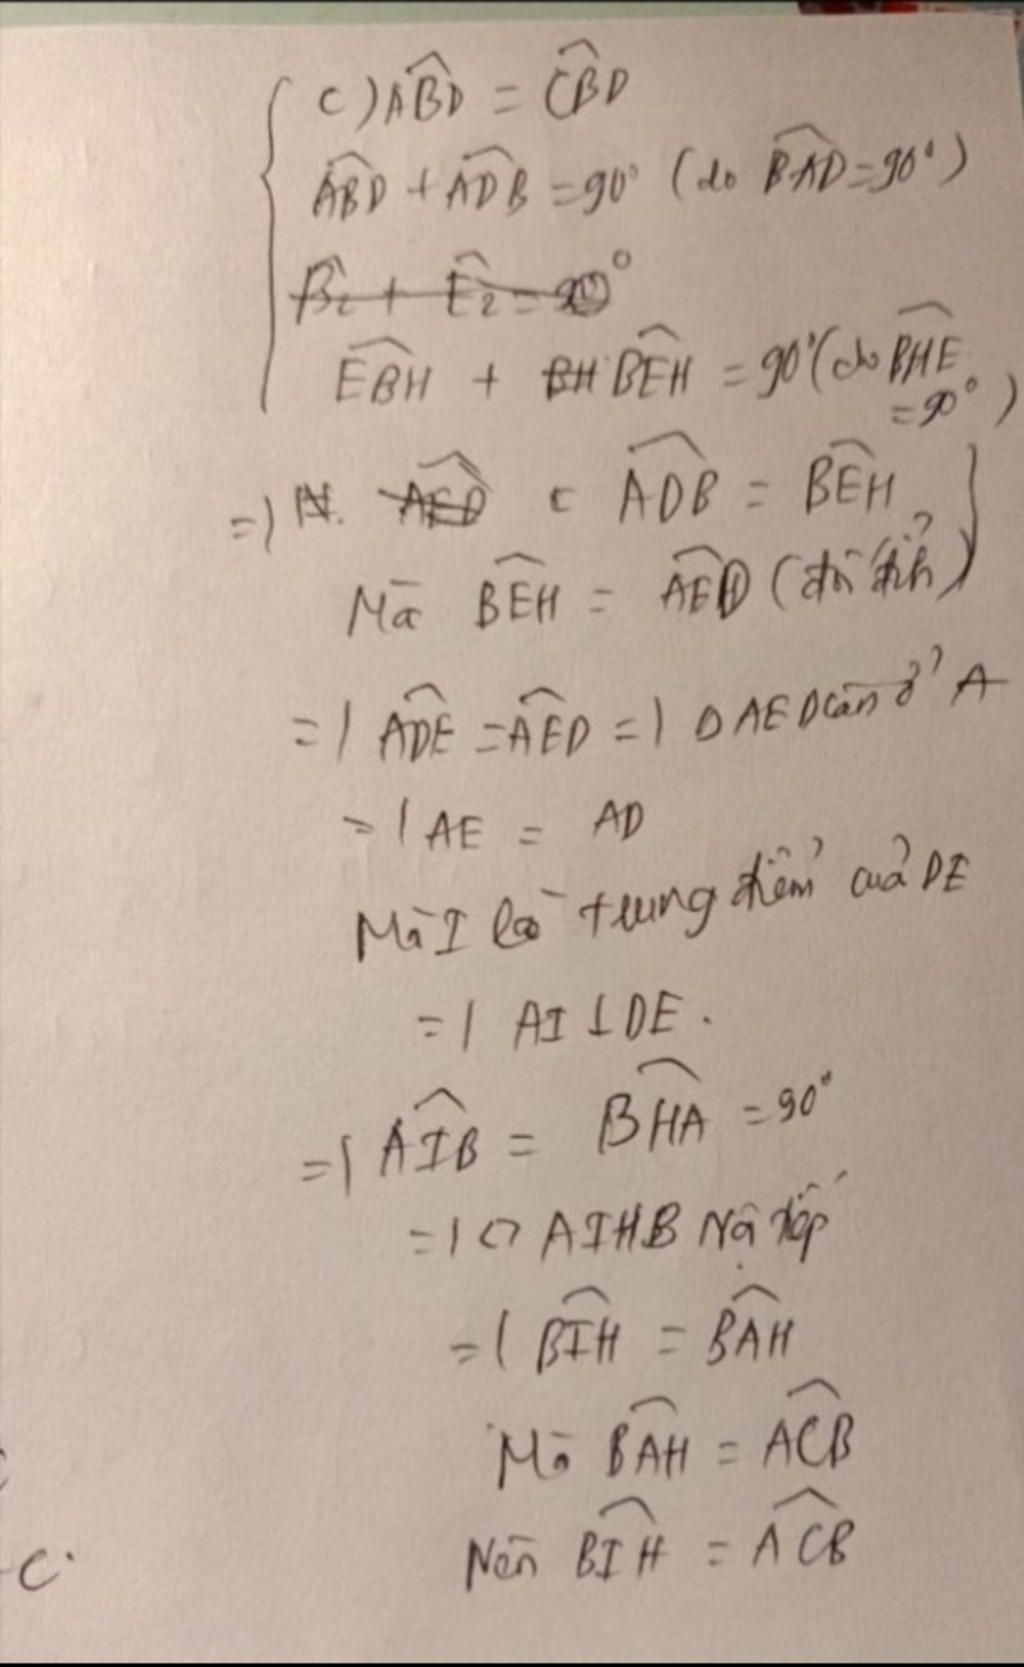 c) ABD = CBD
ABD + ADB = 90° (do BAD = 90°)
B2 + E2 = 90°
EBH + BH BEH = 90° (do BHE
= 90°)
=) N. AED c ADB = BEH
Mà BEH = AED (đối đỉnh)
=) ADE = AED =) Δ AED cân ở A
=) AE = AD
Mà I là trung điểm của DE
=) AI ⊥ DE.
=) AIB = BHA = 90°
=) ◇ AIHB Nội tiếp
=) BIH = BAH
Mà BAH = ACB
Nên BIH = ACB
C.